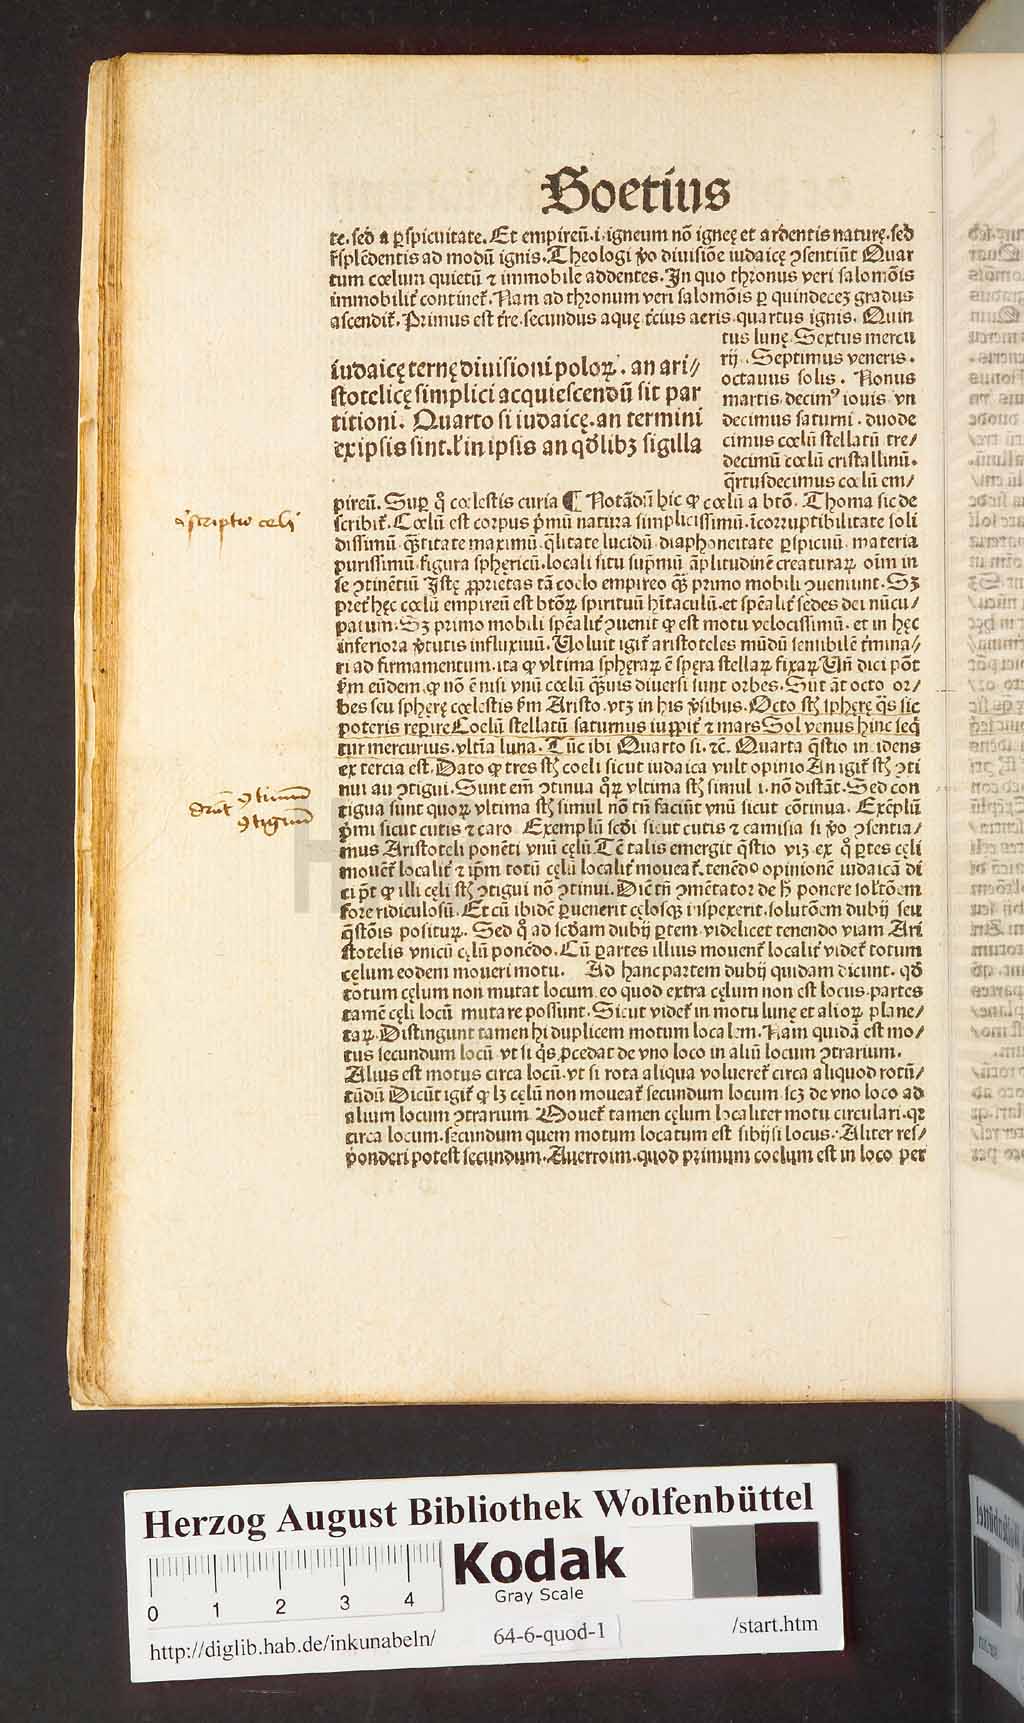 Boetius
te. sed a ꝑspicuitate. Et empireū .i. igneum nō igneę et ardentis naturę. sed
r̄splēdentis ad modū ignis. Theologi ꝟo diuisiōe iudaicę ꝯsentiūt Quar
tum cœlum quietū ⁊ immobile addentes. In quo thronus veri salomōis
immobilit̄ continet̄. Nam ad thronum veri salomōis ꝑ quindecez gradus
ascendit̄. Primus est tr̄e. secundus aquę. tc̄ius aeris. quartus ignis. Quin
tus lunę. Sextus mercu
rij. Septimus veneris.
octauus solis. Nonus
martis. decimꝰ iouis. vn
decimus saturni. duode
cimus cœlū stellatū tre/
decimū cœlū cristallinū.
q̄rtusdecimus cœlū em/
iudaicę ternę diuisioni poloꝝ. an ari//
stotelicę simplici acquiescendū sit par
titioni. Quarto si iudaicę. an termini
ex ipsis sint. l̄ in ipsis an qđlibꝫ sigilla
pireū. Suꝑ q̊ cœlestis curia ¶ Notādū hic ꝙ cœlū a btō. Thoma sic de
scribit̄. Cœlū est corpus p̄mū natura simplicissimū. īcorruptibilitate soli
dissimū. q̄titate maximū. q̄litate lucidū. diaphoneitate ꝑspicuū. materia
purissimū. figura sphericū. locali situ sup̄mū āplitudine creaturaꝝ oīm in
se ꝯtinētiū Istę ꝓprietas tā cœlo empireo q̄ꝫ primo mobili ꝯueniunt. Sꝫ
pret̄ hęc cœlū empireū est btōꝝ spirituū hītaculū. et spēalit̄ sedes dei nūcu/
patum. Sꝫ primo mobili spēalit̄ ꝯuenit ꝙ est motu velocissimū. et in hęc
inferiora ꝟtutis influxiuū. Voluit igit̄ aristoteles mūdū sensibilē t̄mina//
ri ad firmamentum. ita ꝙ vltima sphęraꝝ ē spęra stellaꝝ fixaꝝ Vn̄ dici pōt
s̄m eūdem. ꝙ nō ē nisi vnū cœlū q̄ꝫuis diuersi sunt orbes. Sūt āt octo or/
bes seu spherę cœlestis s̄m Aristo. vtꝫ in his ꝟsibus. Octo st̄ spherę q̄s sic
poteris reꝑire Coelū stellatū saturnus iuppit̄ ⁊ mars Sol venus hinc seq̄
tur mercurius. vltīa luna. Tūc ibi Quarto si. ⁊c̄. Quarta q̄stio in idens
ex tercia est. Dato ꝙ tres st̄ coeli sicut iudaica vult opinio An igit̄ st̄ ꝯti
nui au ꝯtigui. Sunt em̄ ꝯtinua q̊ꝝ vltima st̄ simul .i. nō distāt. Sed con
tigua sūnt quoꝝ vltima st̄ simul non tn̄ faciūt vnū sicut cōtinua. Exēplū
p̄mi sicut cutis ⁊ caro Exemplū scđi sicut cutis ⁊ camisia si ꝟo ꝯsentia/
mus Aristoteli ponēti vnū cęlū. Tc̄ talis emergit q̄stio viꝫ ex q̊ ꝑtes cęli
mouēt̄ localit̄ ⁊ ip̄m totū cęlū localit̄ moueat̄. tenēdo opinionē iudaicā di
ci pōt ꝙ illi cęli st̄ ꝯtigui nō ꝯtinui. Dic̄ tn̄ ꝯmētator de ħ ponere soľtōem
fore ridiculosū. Et cū ibidē ꝑuenerit cęlosqꝫ inspexerit. solutōem dubij seu
q̄stōis posituꝝ. Sed q̊ ad scđam dubij ꝑtem. videlicet tenendo viam Ari
stotelis vnicū cęlū ponēdo. Cū ꝑartes illius mouent̄ localit̄ videt̄ totum
cęlum eodem moueri motu. Ad hanc partem dubij quidam dicunt. qđ
totum cęlum non mutat locum. eo quod extra cęlum non est locus. partes
tamē cęli locū mutare possunt. Sicut videt̄ in motu lunę et alioꝝ plane/
taꝝ. Distingunt tamen hi duplicem motum localem. Nam quidā est mo/
tus secundum locū. vt si q̇s ꝓcedat de vno loco in aliū locum ꝯtrarium.
Alius est motus circa locū. vt si rota aliqua volueret̄ circa aliquod rotū/
tūdū Dicūt igit̄ ꝙ lꝫ cęlū non moueat̄ secundum locum. scꝫ de vno loco ad
alium locum ꝯtrarium Mouet̄ tamen cęlum localiter motu circulari. qꝛ
circa locum. secundum quem motum locatum est sibijpsi locus. Aliter res/
ponderi potest secundum. Auerroim. quod primum coelum est in loco per
ꝯscriptio celi
drn̄t ꝯtinuū
ꝯtiguū
Herzog August Bibliothek Wolfenbüttel
Kodak
Gray Scale
0 1 2 3 4
http://diglib.hab.de/inkunabeln/
64-6-quod-1
/start.htm